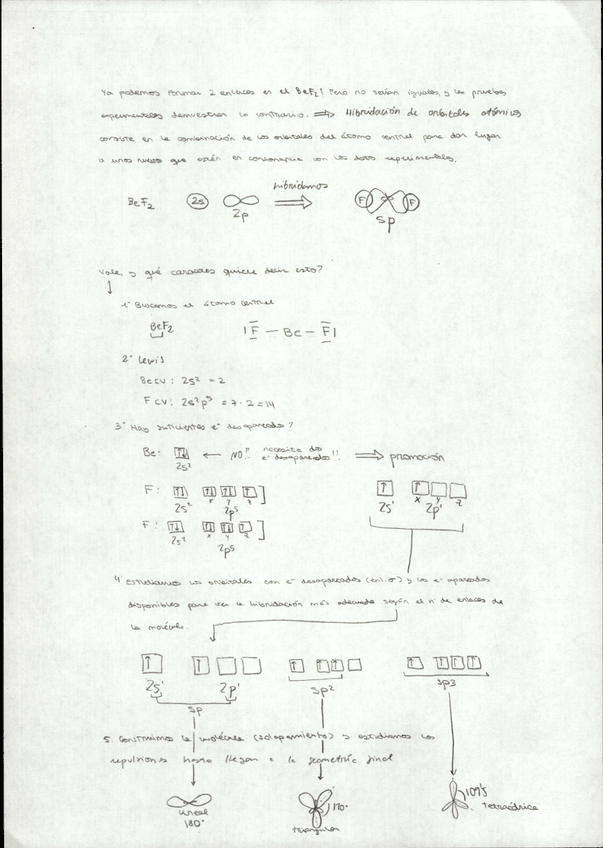 Ya podemos formar 2 enlaces en el BeF2! Pero no serían iguales, y las pruebas
experimentales demuestran lo contrario. ⟹ Hibridación de orbitales atómicos
consiste en la combinación de los orbitales del átomo central para dar lugar
a unos nuevos que estén en consonancia con los datos experimentales.
hibridamos
BeF2 2s 2p ⟹ F F sp
Vale, y qué caracoles quiere decir esto?
1º Buscamos el átomo central
BeF2 |F — Be — F|
2º Lewis
Be cv: 2s² = 2
F cv: 2s²p⁵ = 7·2 = 14
3º Hay suficientes e⁻ desapareados?
Be: ↑↓ ← NO!! necesita dos e⁻ desapareados!! ⟹ promoción
2s²
F: ↑↓ ↑↓ ↑↓ ↑ ↑ ↑
2s² x y z 2p⁵ 2s¹ x y z 2p¹
F: ↑↓ ↑↓ ↑↓ ↑
2s² x y z
2p⁵
4º Estudiamos los orbitales con e⁻ desapareados (enl. σ) y los e⁻ apareados
disponibles para ver la hibridación más adecuada según el nº de enlaces de
la molécula.
↑ ↑ ↑ ↑ ↑ ↑ ↑ ↑ ↑
2s¹ 2p¹ sp² sp3
sp
5. Construimos la molécula (solapamiento) y estudiamos las
repulsiones hasta llegar a la geometría final
lineal 180º
120º triangular
109'5 tetraédrica